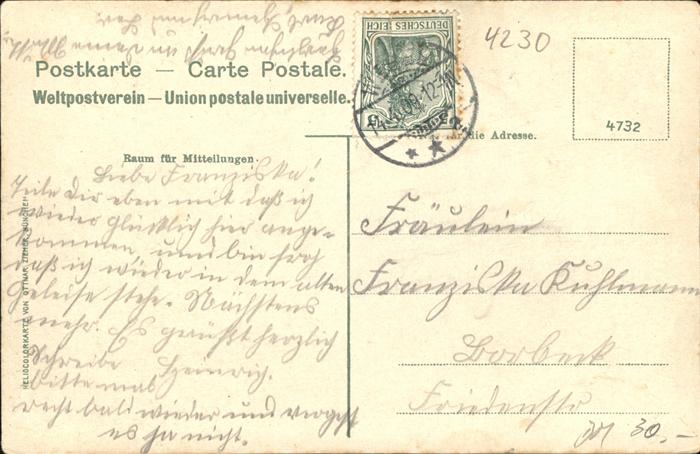 4230
Postkarte — Carte Postale.
Weltpostverein — Union postale universelle.
DEUTSCHES REICH
5
12-1
4732
für die Adresse.
Raum für Mitteilungen.
Liebe Franziska!
Teile Dir eben mit daß ich
wieder glücklich hier ange-
kommen, und bin froh
daß ich wieder in dem alten
Geleise stehe. Nächstens
mehr. Es grüßt herzlich
Schreibe Heinrich.
bitte mal
recht bald wieder und vergeß
es ja nicht.
Fräulein
Franziska Kuhlmann
Borbeck
Friedenstr
30,-
HELIOCOLORKARTE VON OTTMAR ZIEHER, MÜNCHEN